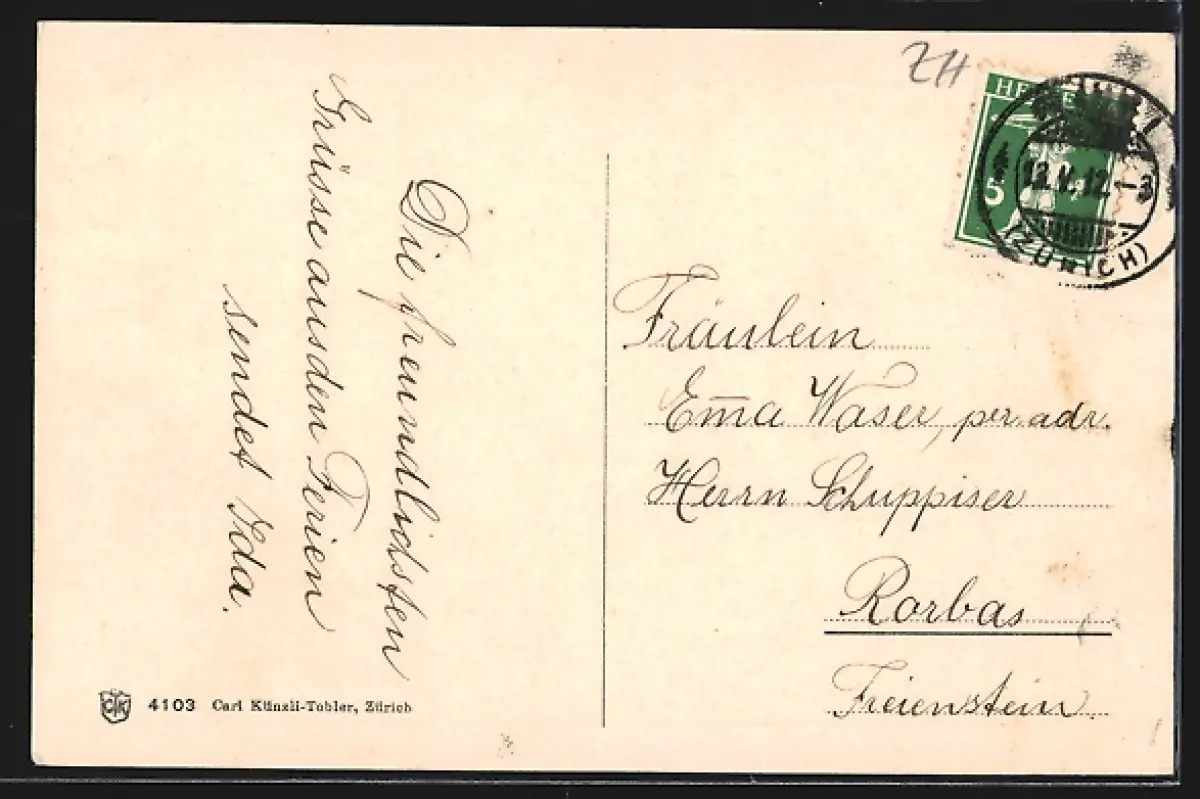 Die freundlichsten
Grüsse aus den Ferien
sendet Ida.
ZH
HELVE
5
13.V.12.-3
(ZÜRICH)
Fräulein
Em̅a Waser, per adr.
Herrn Schuppiser
Rorbas
Freienstein.
4103 Carl Künzli-Tobler, Zürich